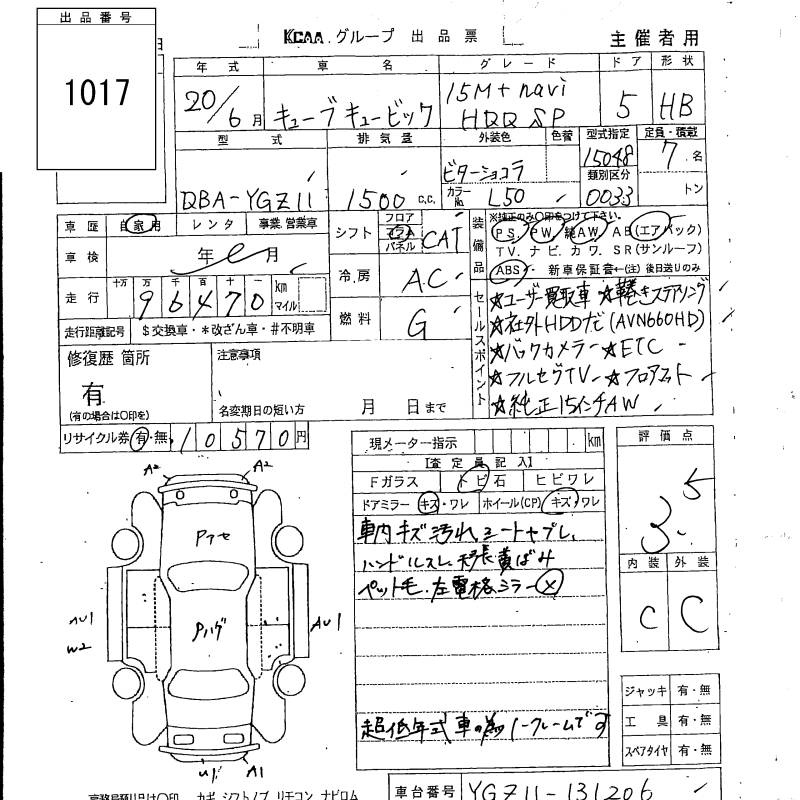 出品番号
1017
KCAA グループ 出品票
主催者用
年式 車名 グレード ドア 形状
20/6月 キューブキュービック 15M+navi HDD SP 5 HB
型式 排気量 外装色 色替 型式指定 定員・積載
ビターショコラ 15048 7 名
類別区分
DBA-YGZ11 1500 C.C. カラーNo. L50 0033 トン
車歴 自家用 レンタ 事業 営業車
シフト フロア コラム パネル CAT
装備品
※純正のみ○印をつけて下さい。
PS PW 純AW AB(エアバック)
TV. ナビ. カワ. SR(サンルーフ)
ABS ・ 新車保証書←(注)後日送りのみ
車検 年 月
冷房 AC
走行 十万 万 千 百 十 一 km マイル
96470
走行距離記号 $交換車・*改ざん車・#不明車
燃料 G
セールスポイント
☆ユーザー買取車 ☆軽きステアリング
☆社外HDDナビ(AVN660HD)
☆バックカメラ ☆ETC
☆フルセグTV ☆フロアマット
☆純正15インチAW
修復歴 箇所
有
(有の場合は○印を)
注意事項
名変期日の短い方 月 日まで
リサイクル券 有・無 10570円
現メーター指示 km
【査定員記入】
Fガラス トビ石 ヒビワレ
ドアミラー キズ・ワレ ホイール(CP) キズ・ワレ
車内キズ汚レ、シートヤブレ、
ハンドルスレ 天張黄ばみ
ペット毛、左電格ミラー×
超低年式車の為ノークレームです
評価点
3.5
内装 外装
C C
ジャッキ 有・無
工具 有・無
スペアタイヤ 有・無
A2 A2
Pアセ
Pハゲ
AU1
W2
AU1
U1 A1
車台番号 YGZ11-131206